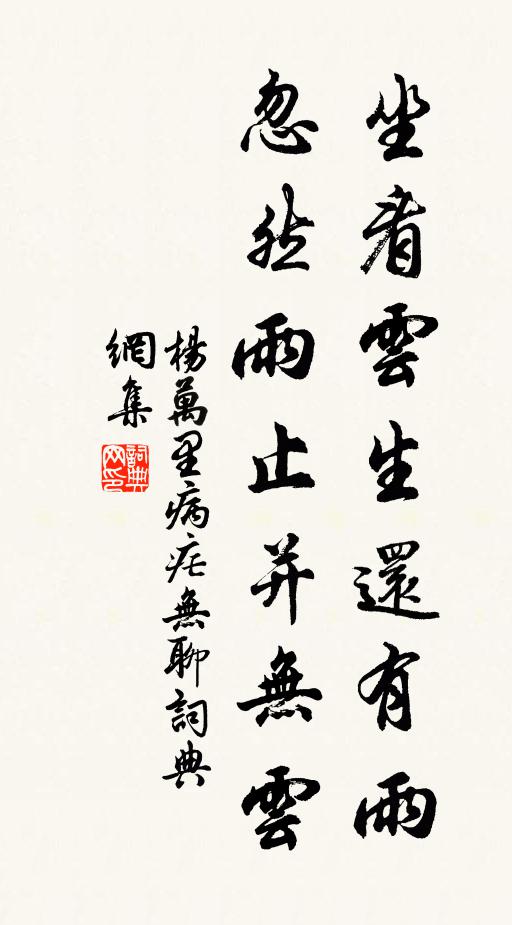 坐看雲生還有雨
忽然雨止并無雲
楊萬里病疟無聊詞典
網集
詞典
网印